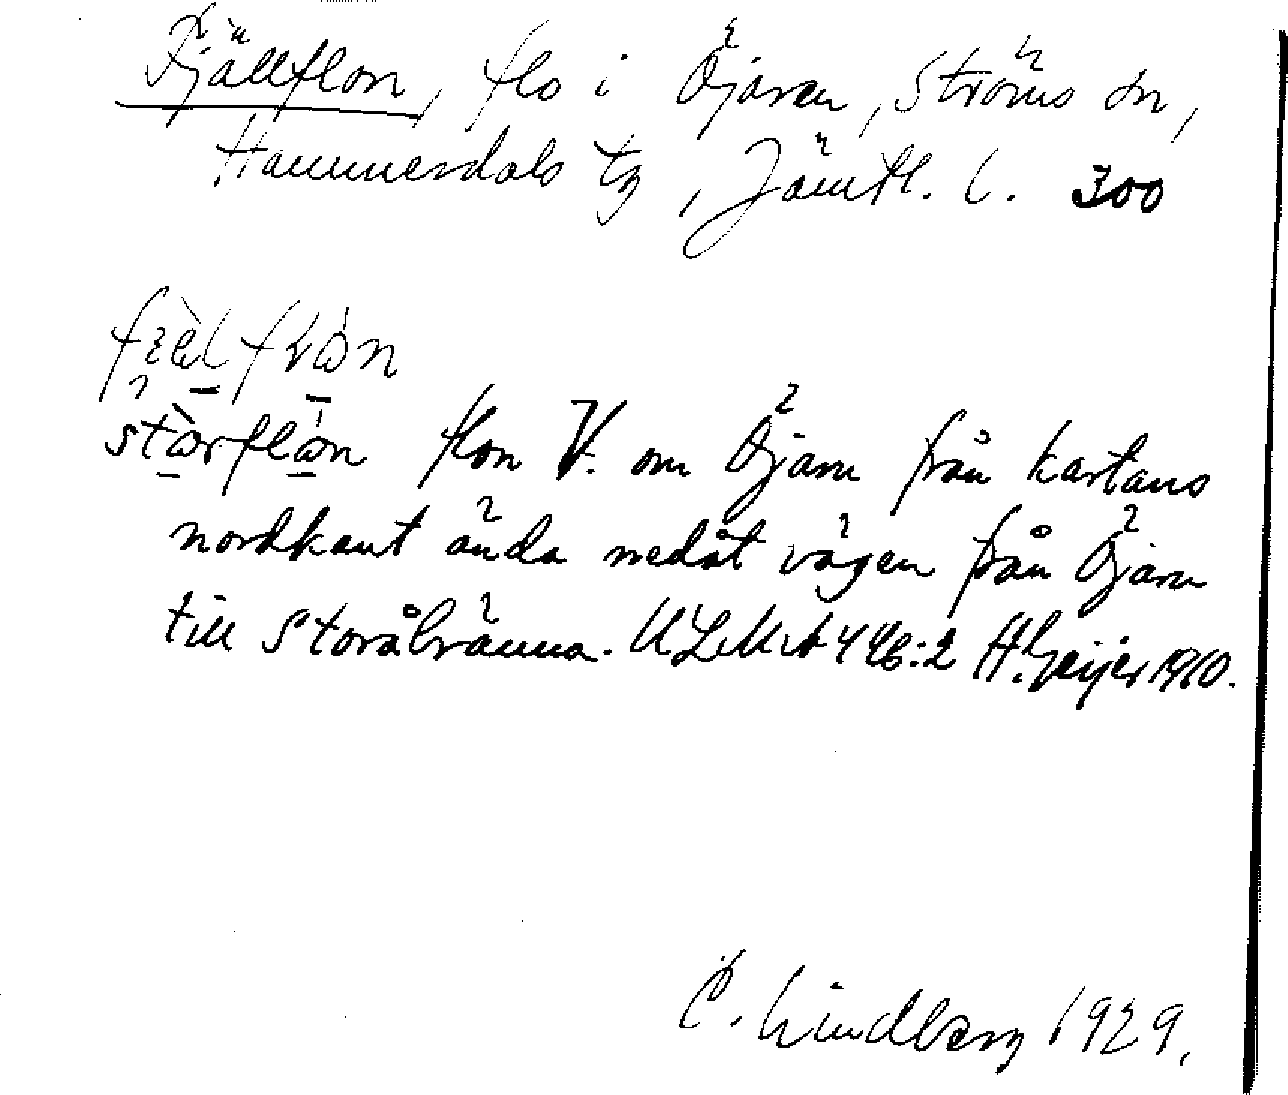 Fjällflon, flo i Öjaren, Ströms sn,
Hammerdals tg, Jämtl. l. 300
stòrflón flon V. om Öjarn från kartans
nordkant ända nedåt vägen från Öjarn
till Storåbränna. ULMA 446:2 H. Geijer 1910.
C. Lindberg 1929.